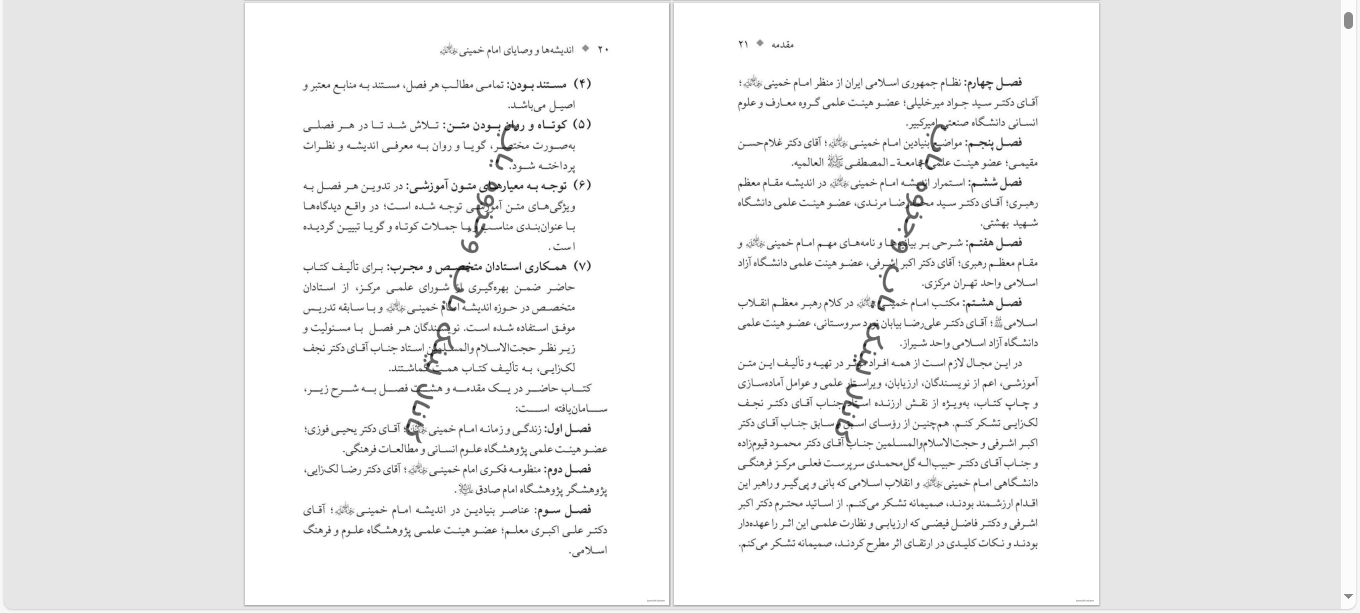 ۲۰ ◆ اندیشه‌ها و وصایای امام خمینی
(۴) مستند بودن: تمامی مطالب هر فصل، مستند به منابع معتبر و
اصیل می‌باشد.
(۵) کوتاه و روان بودن متن: تلاش شد تا در هر فصلی
به‌صورت مختصر، گویا و روان به معرفی اندیشه و نظرات
پرداخته شود.
(۶) توجه به معیارهای متون آموزشی: در تدوین هر فصل به
ویژگی‌های متن آموزشی توجه شده است؛ در واقع دیدگاه‌ها
با عنوان‌بندی مناسب و با جملات کوتاه و گویا تبیین گردیده
است.
(۷) همکاری استادان متخصص و مجرب: برای تألیف کتاب
حاضر ضمن بهره‌گیری از شورای علمی مرکز، از استادان
متخصص در حوزه اندیشه امام خمینی و با سابقه تدریس
موفق استفاده شده است. نویسندگان هر فصل با مسئولیت و
زیر نظر حجت‌الاسلام والمسلمین استاد جناب آقای دکتر نجف
لک‌زایی، به تألیف کتاب همت گماشتند.
کتاب حاضر در یک مقدمه و هشت فصل به شرح زیر،
سامان‌یافته است:
فصل اول: زندگی و زمانه امام خمینی؛ آقای دکتر یحیی فوزی؛
عضو هیئت علمی پژوهشگاه علوم انسانی و مطالعات فرهنگی.
فصل دوم: منظومه فکری امام خمینی؛ آقای دکتر رضا لک‌زایی،
پژوهشگر پژوهشگاه امام صادق.
فصل سوم: عناصر بنیادین در اندیشه امام خمینی؛ آقای
دکتر علی اکبری معلم؛ عضو هیئت علمی پژوهشگاه علوم و فرهنگ
اسلامی.
مقدمه ◆ ۲۱
فصل چهارم: نظام جمهوری اسلامی ایران از منظر امام خمینی؛
آقای دکتر سید جواد میرخلیلی؛ عضو هیئت علمی گروه معارف و علوم
انسانی دانشگاه صنعتی امیرکبیر.
فصل پنجم: مواضع بنیادین امام خمینی؛ آقای دکتر غلام‌حسن
مقیمی؛ عضو هیئت علمی جامعة ـ المصطفی العالمیه.
فصل ششم: استمرار اندیشه امام خمینی در اندیشه مقام معظم
رهبری؛ آقای دکتر سید محمدرضا مرندی، عضو هیئت علمی دانشگاه
شهید بهشتی.
فصل هفتم: شرحی بر بیانیه‌ها و نامه‌های مهم امام خمینی و
مقام معظم رهبری؛ آقای دکتر اکبر اشرفی، عضو هیئت علمی دانشگاه آزاد
اسلامی واحد تهران مرکزی.
فصل هشتم: مکتب امام خمینی در کلام رهبر معظم انقلاب
اسلامی؛ آقای دکتر علی‌رضا بیابان نورد سروستانی، عضو هیئت علمی
دانشگاه آزاد اسلامی واحد شیراز.
در این مجال لازم است از همه افراد مؤثر در تهیه و تألیف این متن
آموزشی، اعم از نویسندگان، ارزیابان، ویراستار علمی و عوامل آماده‌سازی
و چاپ کتاب، به‌ویژه از نقش ارزنده استاد جناب آقای دکتر نجف
لک‌زایی تشکر کنم. هم‌چنین از رؤسای اسبق و سابق جناب آقای دکتر
اکبر اشرفی و حجت‌الاسلام‌والمسلمین جناب آقای دکتر محمود قیوم‌زاده
و جناب آقای دکتر حبیب‌اله گل‌محمدی سرپرست فعلی مرکز فرهنگی
دانشگاهی امام خمینی و انقلاب اسلامی که بانی و پی‌گیر و راهبر این
اقدام ارزشمند بودند، صمیمانه تشکر می‌کنم. از اساتید محترم دکتر اکبر
اشرفی و دکتر فاضل فیضی که ارزیابی و نظارت علمی این اثر را عهده‌دار
بودند و نکات کلیدی در ارتقای اثر مطرح کردند، صمیمانه تشکر می‌کنم.